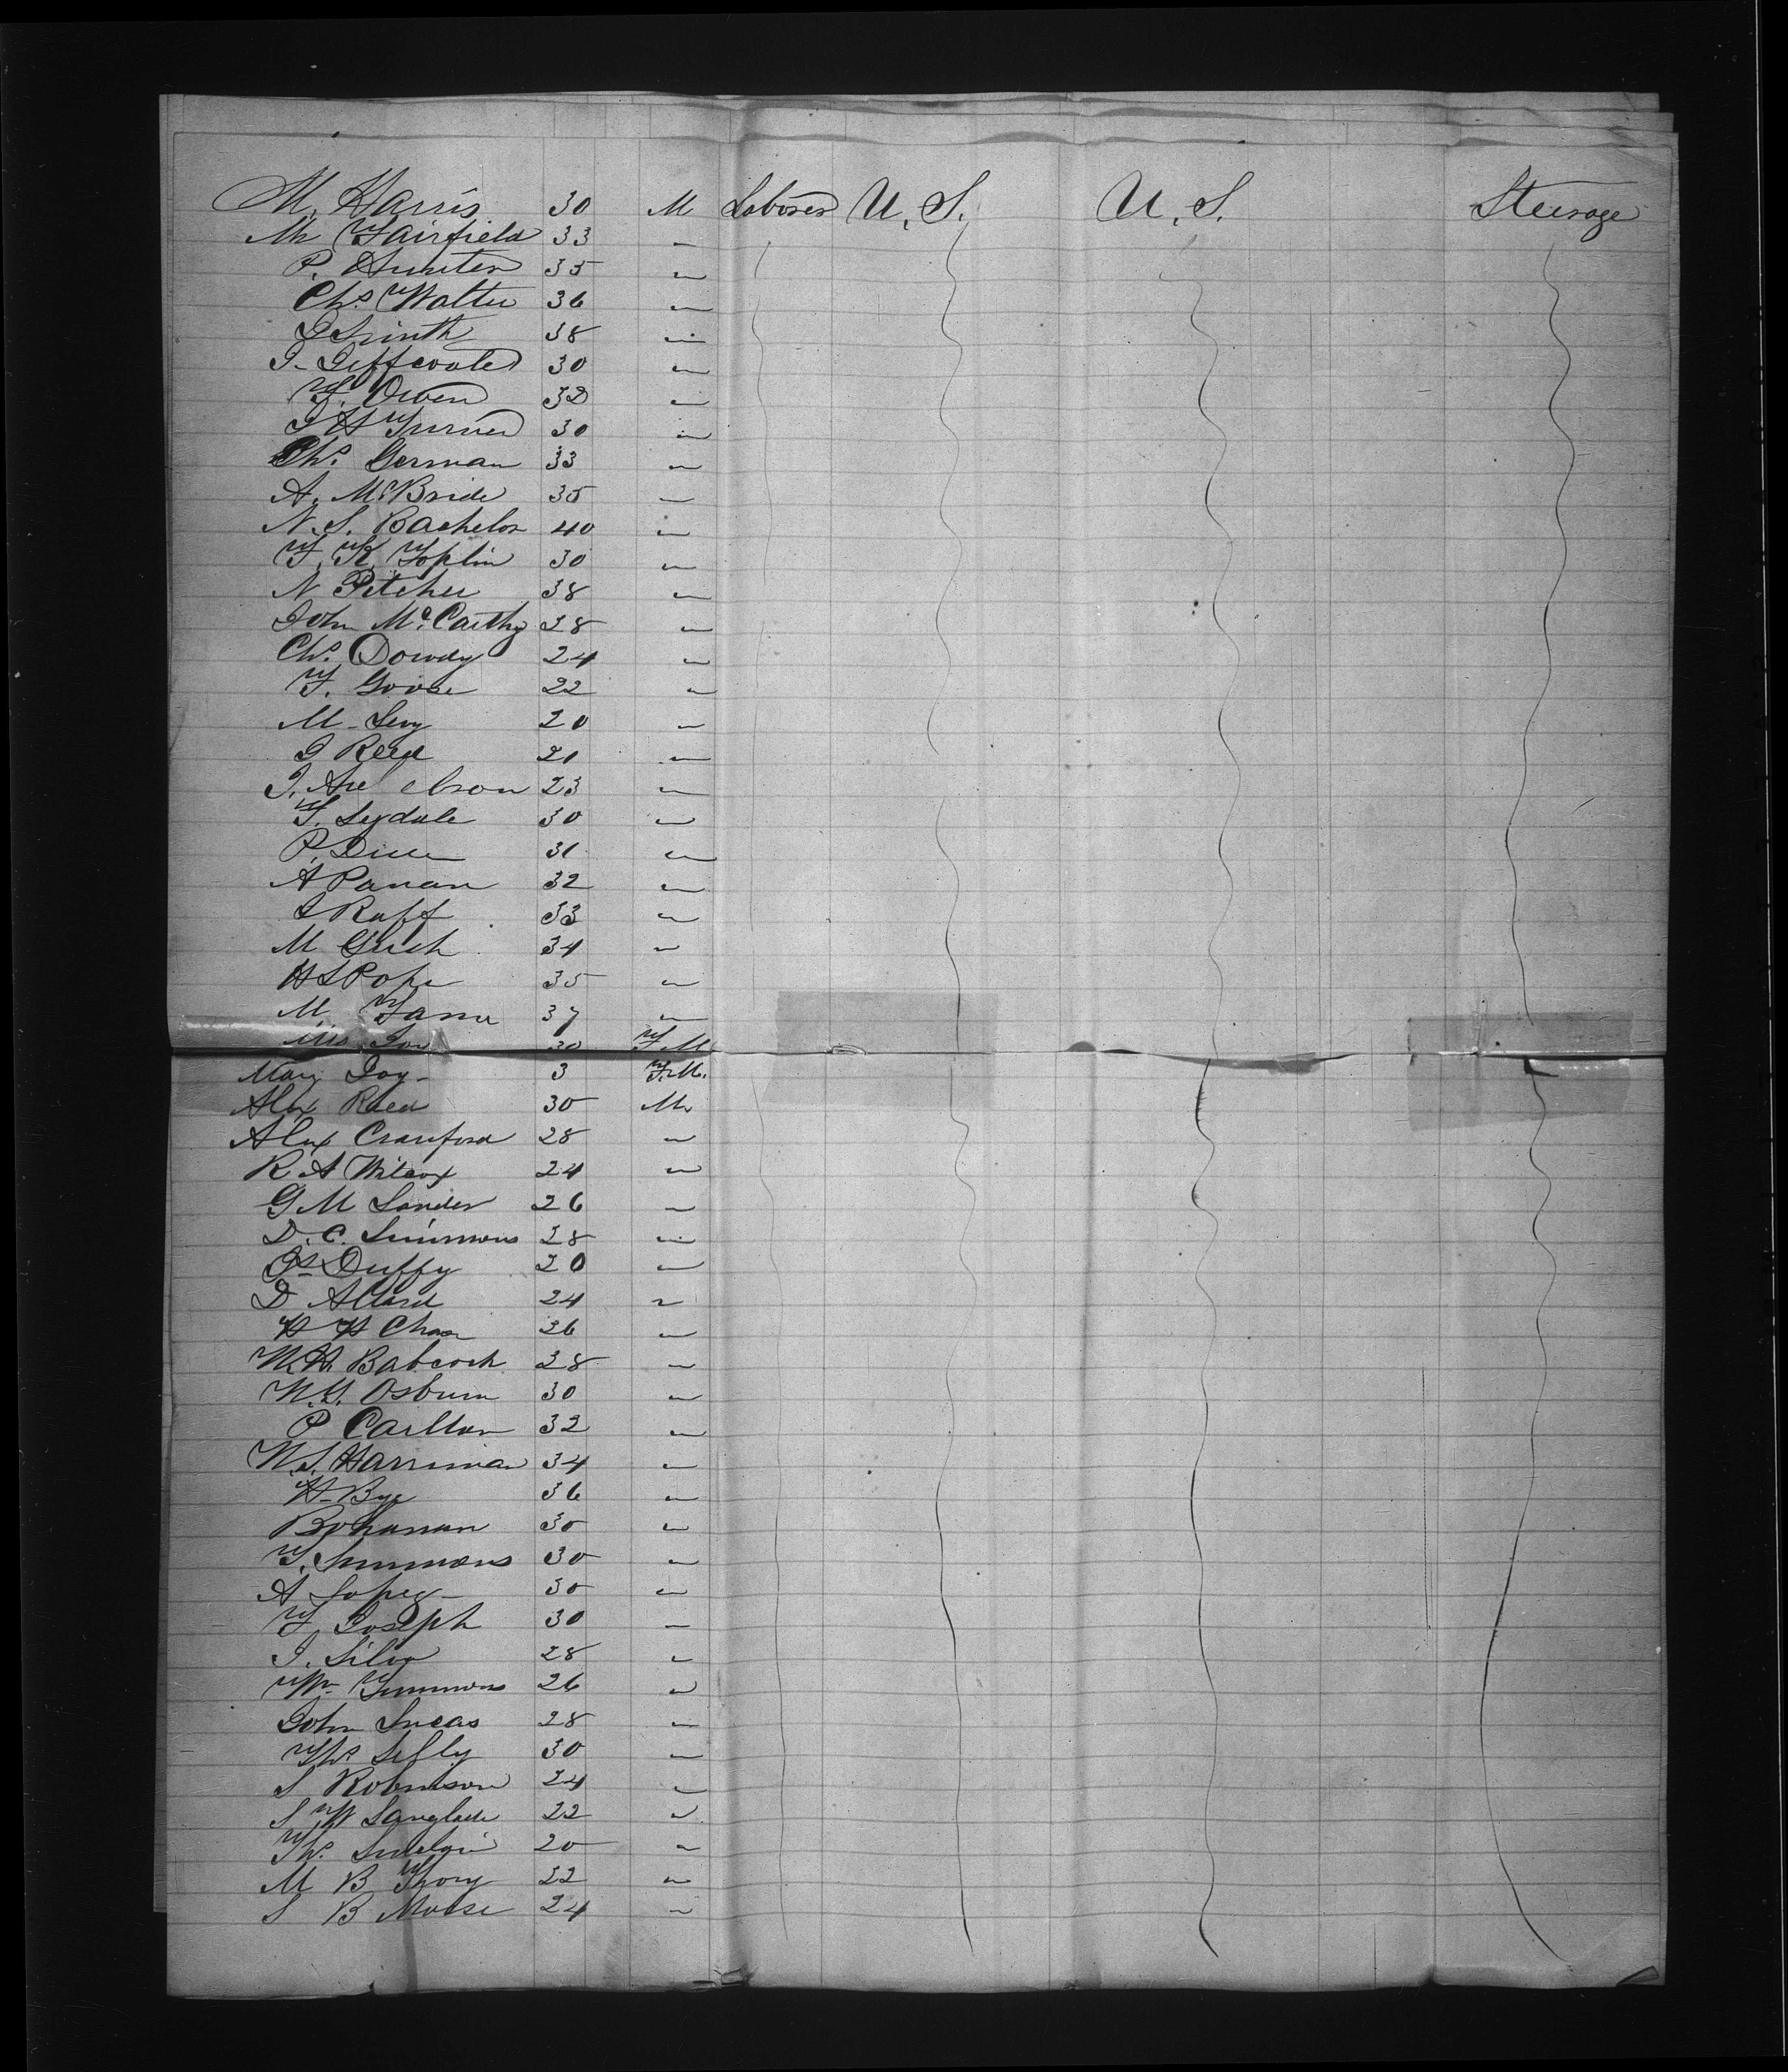 M. Harris 30 M Laborer U.S. U.S. Steerage
Mr Fairfield 33 "
P. Hunter 35 "
Chs Walter 36 "
38 "
J. Jeffcoate 30 "
F. Owen 32 "
J H Turner 30 "
Chs. German 33 "
A. McBride 35 "
N. S. Bachelor 40 "
F. K. Joplin 30 "
N Pitcher 38 "
John McCarthy 28 "
Chs. Dowdy 24 "
T. Goose 22 "
M. Levy 20 "
J Reed 21 "
J. 23 "
T. Lydale 30 "
P. 31 "
A 32 "
J Ruff 33 "
M 34 "
H S Pope 35 "
M 37 "
Mrs. Joy 30 F. M
Mary Joy 3 F. M.
Alex Reed 30 M.
Alex Crawford 28 "
R. A Wilcox 24 "
G. M Sander 26 "
D. C. Simmons 28 "
Js Duffy 20 "
D Allard 24 "
H H Chase 26 "
W. H. Babcock 28 "
W. G. Osburn 30 "
P Carlton 32 "
W. S. Harriman 34 "
H. Bye 36 "
Bohanan 30 "
T. Simmons 30 "
A Lopez 30 "
F. Joseph 30 "
J. Silva 28 "
Wm 26 "
John Lucas 28 "
Ths. 30 "
S Robinson 24 "
S W Langlade 22 "
Ths. 20 "
M B 22 "
S B Morse 24 "